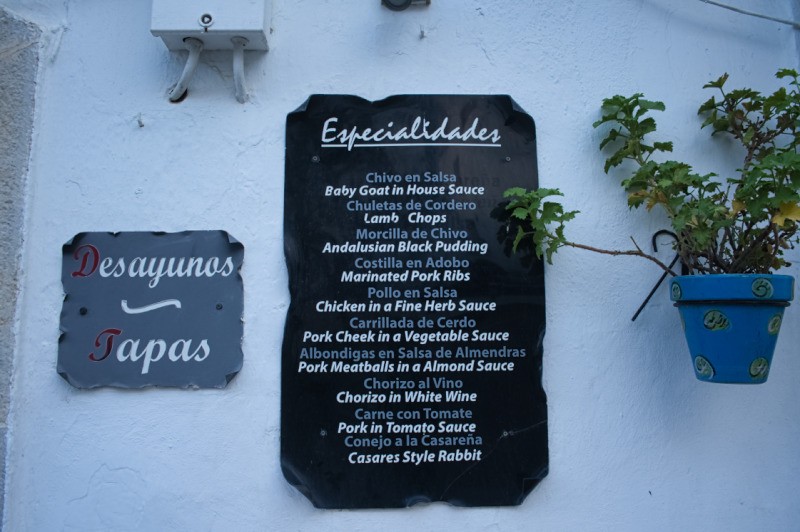 Desayunos
Tapas
Especialidades
Chivo en Salsa
Baby Goat in House Sauce
Chuletas de Cordero
Lamb Chops
Morcilla de Chivo
Andalusian Black Pudding
Costilla en Adobo
Marinated Pork Ribs
Pollo en Salsa
Chicken in a Fine Herb Sauce
Carrillada de Cerdo
Pork Cheek in a Vegetable Sauce
Albondigas en Salsa de Almendras
Pork Meatballs in a Almond Sauce
Chorizo al Vino
Chorizo in White Wine
Carne con Tomate
Pork in Tomato Sauce
Conejo a la Casareña
Casares Style Rabbit